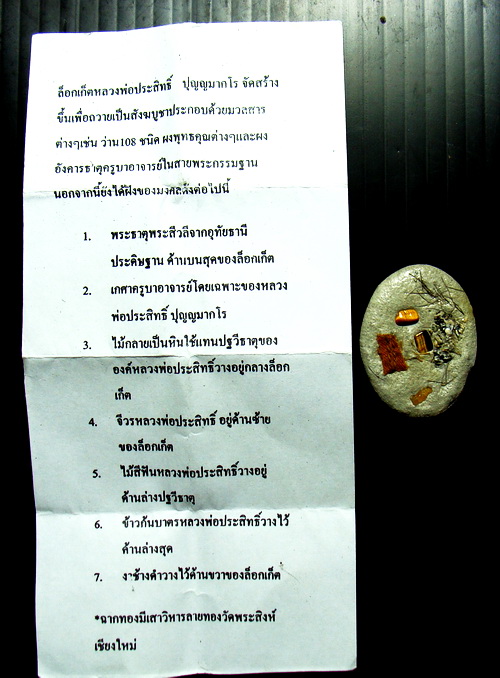 ล็อกเก็ตหลวงพ่อประสิทธิ์ ปุญญมากโร จัดสร้าง
ขึ้นเพื่อถวายเป็นสังฆบูชาประกอบด้วยมวลสาร
ต่างๆเช่น ว่าน108 ชนิด ผงพุทธคุณต่างๆและผง
อังคารธาตุครูบาอาจารย์ในสายพระกรรมฐาน
นอกจากนี้ยังได้ฝังของมงคลดังต่อไปนี้
1. พระธาตุพระสีวลีจากอุทัยธานี
ประดิษฐาน ด้านบนสุดของล็อกเก็ต
2. เกศาครูบาอาจารย์โดยเฉพาะของหลวง
พ่อประสิทธิ์ ปุญญมากโร
3. ไม้กลายเป็นหินใช้แทนปฐวีธาตุของ
องค์หลวงพ่อประสิทธิ์วางอยู่กลางล็อก
เก็ต
4. จีวรหลวงพ่อประสิทธิ์ อยู่ด้านซ้าย
ของล็อกเก็ต
5. ไม้สีฟันหลวงพ่อประสิทธิ์วางอยู่
ด้านล่างปฐวีธาตุ
6. ข้าวก้นบาตรหลวงพ่อประสิทธิ์วางไว้
ด้านล่างสุด
7. งาช้างดำวางไว้ด้านขวาของล็อกเก็ต
*ฉากทองมีเสาวิหารลายทองวัดพระสิงห์
เชียงใหม่